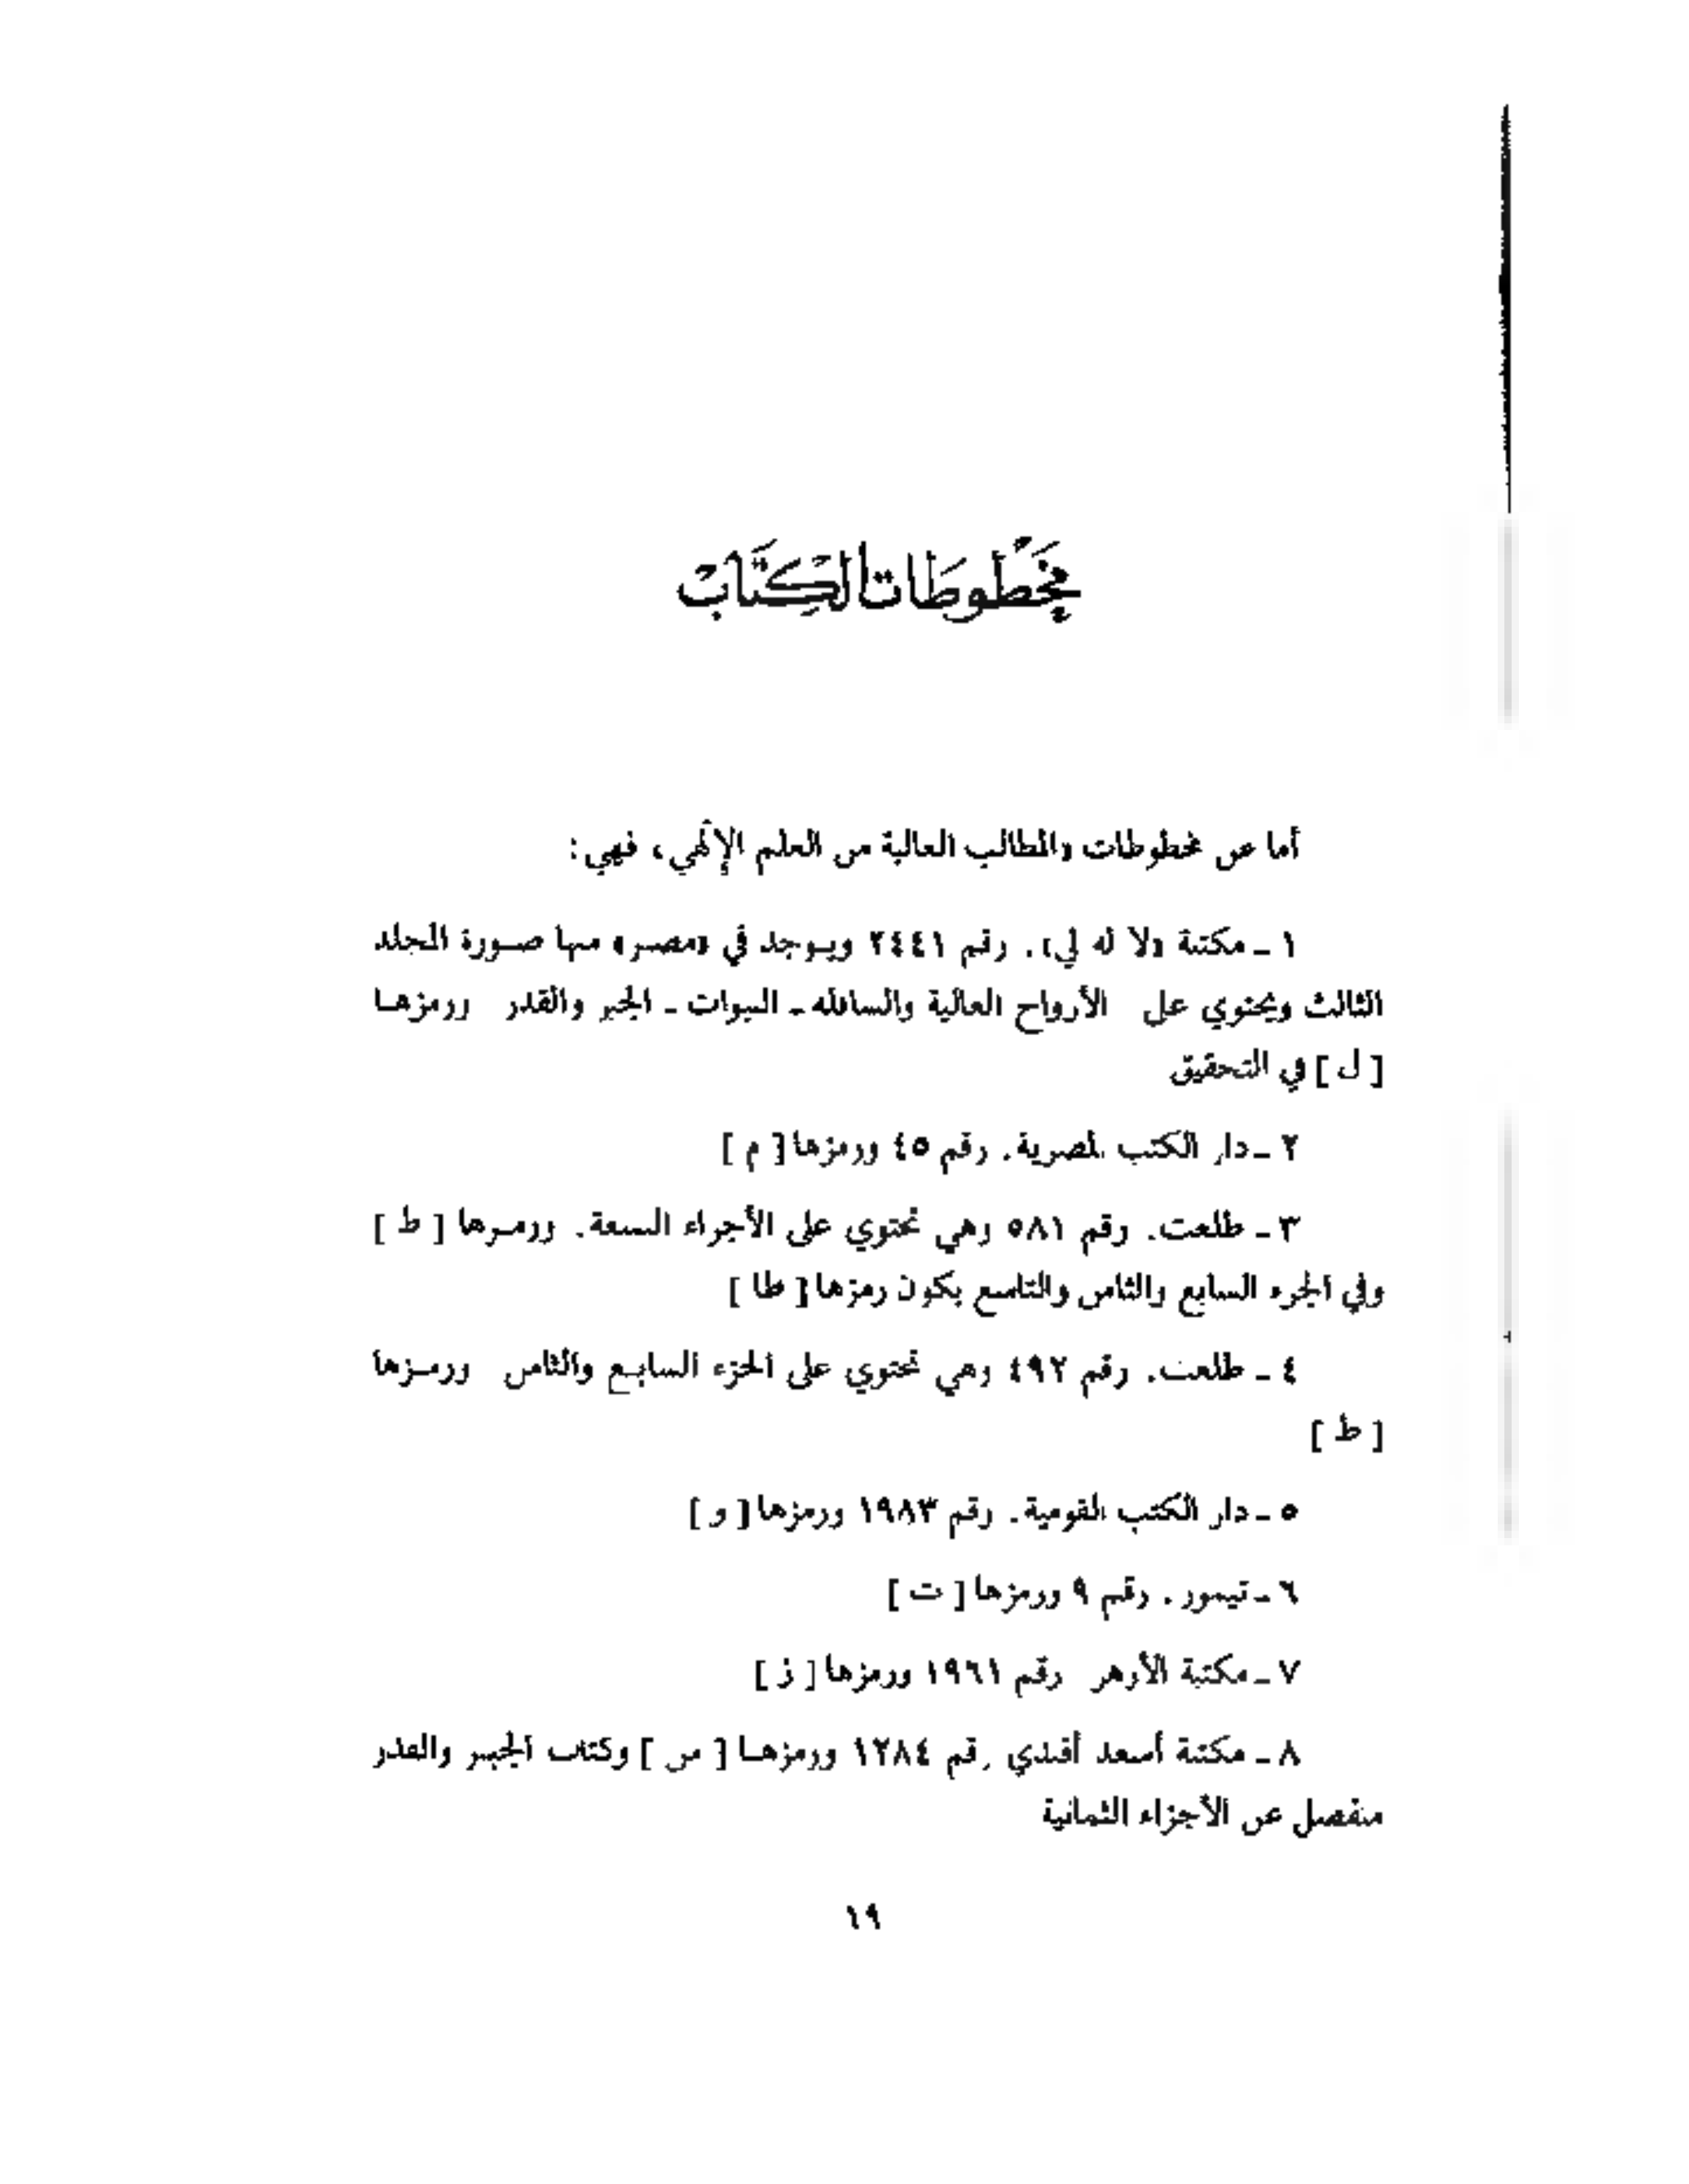 مخطوطات الكتاب
أما عن مخطوطات «المطالب العالية من العلم الإلهي» فهي:
١ ـ مكتبة «لا له لي». رقم ٢٤٤١ ويوجد في «مصر» منها صورة المجلد
الثالث ويحتوي على الأرواح العالية والسافلة ـ النبوات ـ الجبر والقدر ورمزها
[ ل ] في التحقيق
٢ ـ دار الكتب المصرية. رقم ٤٥ ورمزها [ م ]
٣ ـ طلعت. رقم ٥٨١ وهي تحتوي على الأجزاء التسعة. ورمزها [ ط ]
وفي الجزء السابع والثامن والتاسع يكون رمزها [ طا ]
٤ ـ طلعت. رقم ٤٩٢ وهي تحتوي على الجزء السابع والثامن ورمزها
[ ط ]
٥ ـ دار الكتب القومية. رقم ١٩٨٣ ورمزها [ و ]
٦ ـ تيمور. رقم ٩ ورمزها [ ت ]
٧ ـ مكتبة الأزهر رقم ١٩٦١ ورمزها [ ز ]
٨ ـ مكتبة أسعد أفندي رقم ١٢٨٤ ورمزها [ س ] وكتاب الجبر والقدر
منفصل عن الأجزاء الثمانية
١٩